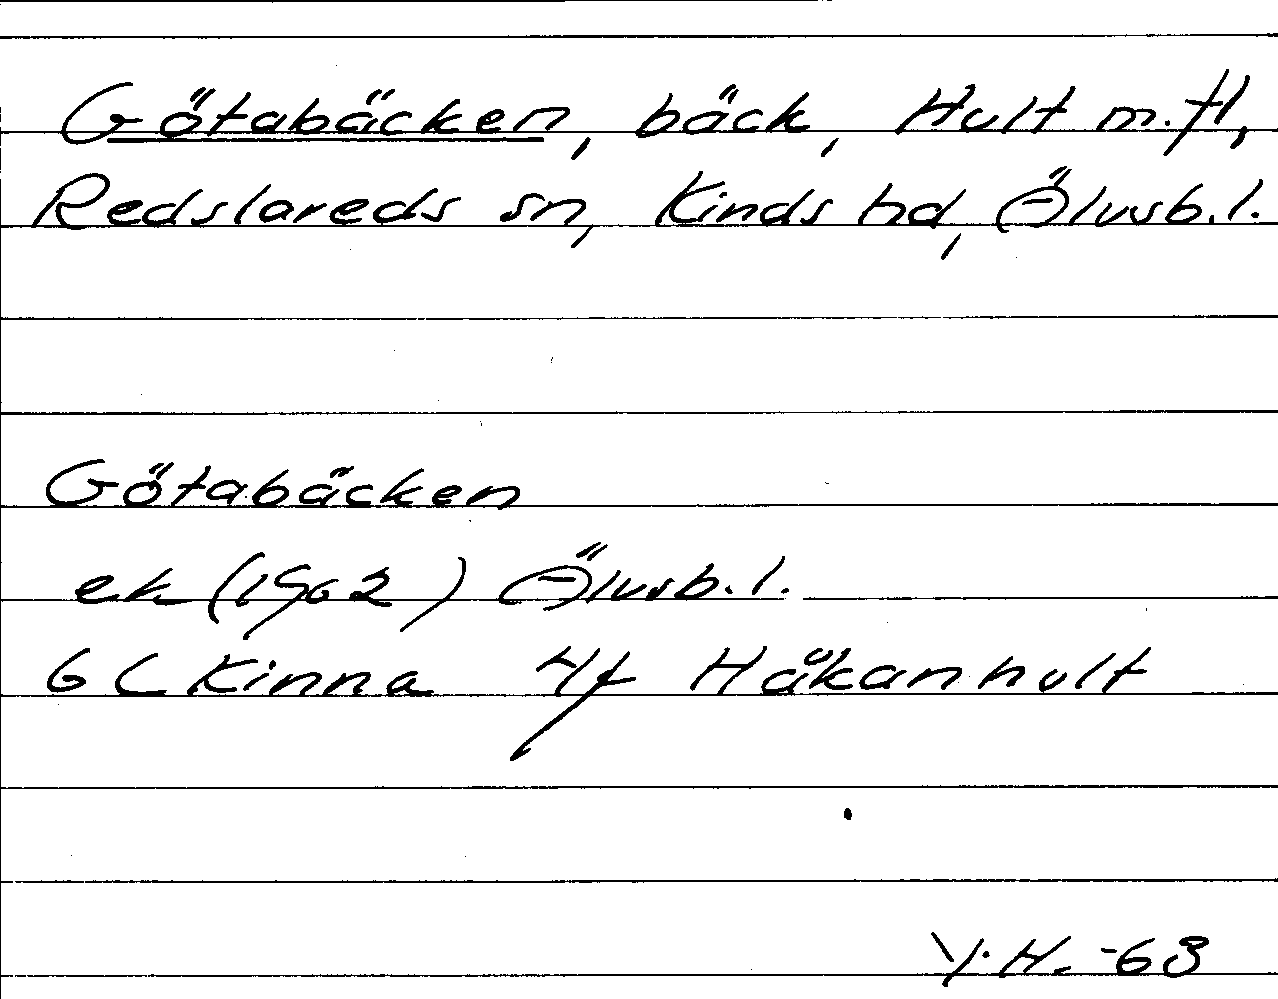 Götabäcken, bäck, Hult m.fl,
Redslareds sn, Kinds hd, Älvsb.l.
Götabäcken
ek (1962) Älvsb.l.
6 C Kinna 4f Håkanhult
Y.H. -63